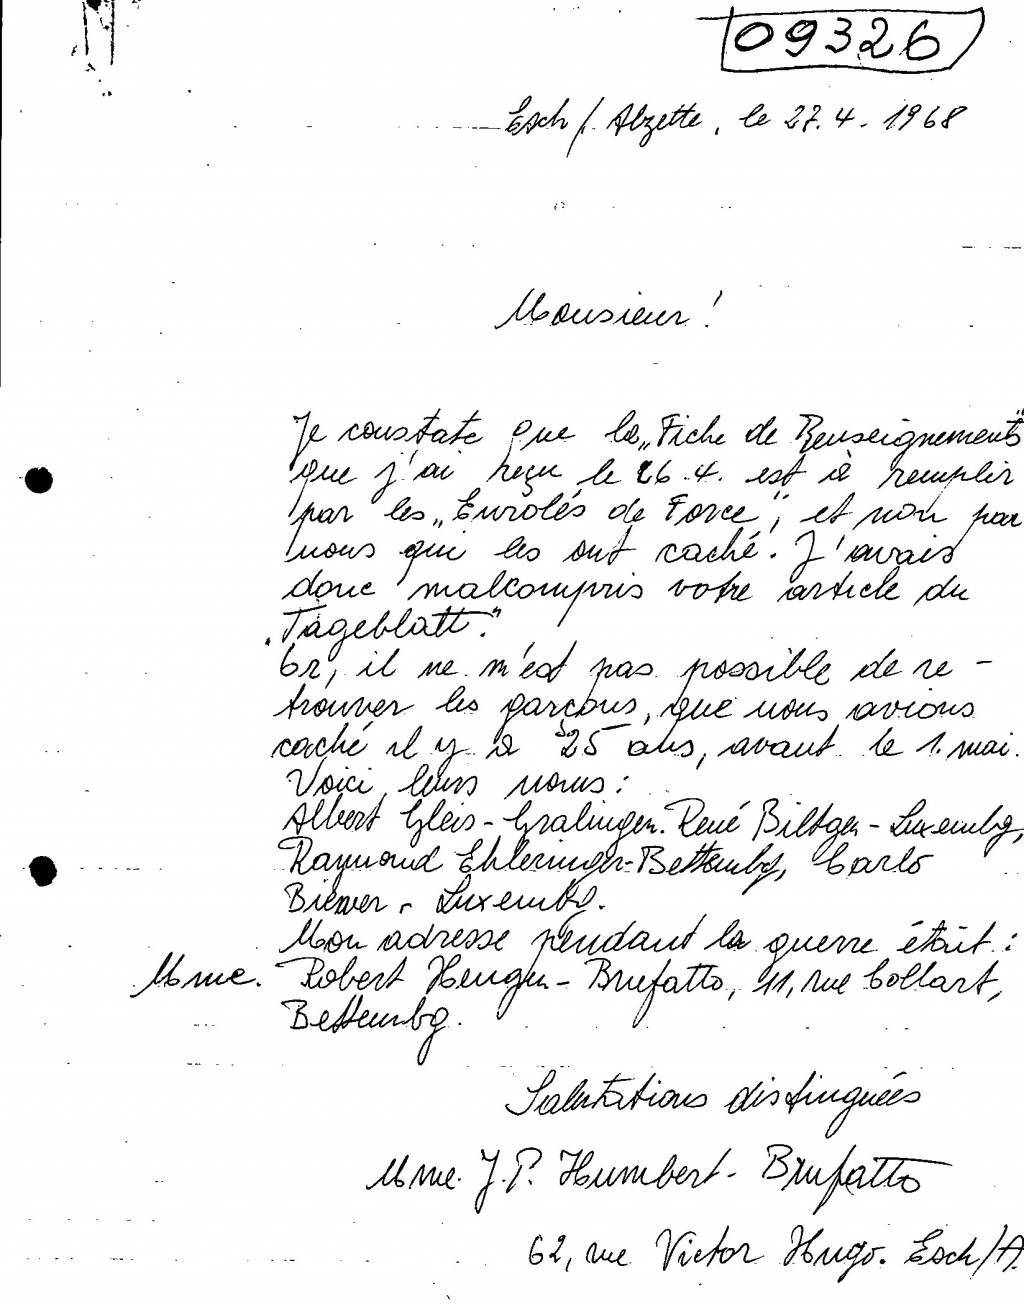 09326
Esch/Alzette, le 27.4.1968
Monsieur!
Je constate que la „Fiche de Renseignements"
que j'ai reçu le 26.4. est à remplir
par les „Enrolés de Force", et non par
nous qui les ont caché. J'avais
donc malcompris votre article du
„Tageblatt."
Or, il ne m'est pas possible de re-
trouver les garçons, que nous avions
caché il y a 25 ans, avant le 1. mai.
Voici leurs noms:
Albert Gleis-Gralingen. René Biltgen-Luxembg,
Raymond Ehleringer-Bettembg, Carlo
Biewer-Luxembg.
Mon adresse pendant la guerre était:
Mme. Robert Hengen-Brufatto, 11, rue Collart,
Bettembg.
Salutations distinguées
Mme. J.P. Humbert-Brufatto
62, rue Victor Hugo. Esch/A.